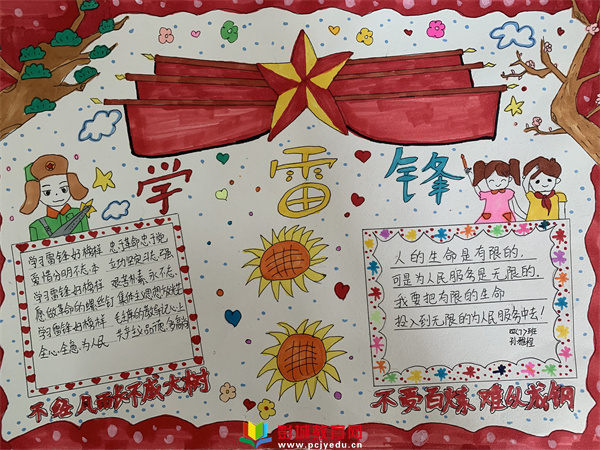 学雷锋
学习雷锋好榜样 忠于革命忠于党
爱憎分明不忘本 立场坚定斗志强
学习雷锋好榜样 艰苦朴素永不忘
愿做革命的螺丝钉 集体主义思想放光芒
学习雷锋好榜样 毛主席的教导记心上
全心全意为人民 共产主义品德多高尚
不经风雨长不成大树
人的生命是有限的,
可是为人民服务是无限的.
我要把有限的生命
投入到无限的为人民服务中去!
四(7)班
不受百炼 难以成钢
www.pcjyedu.cn